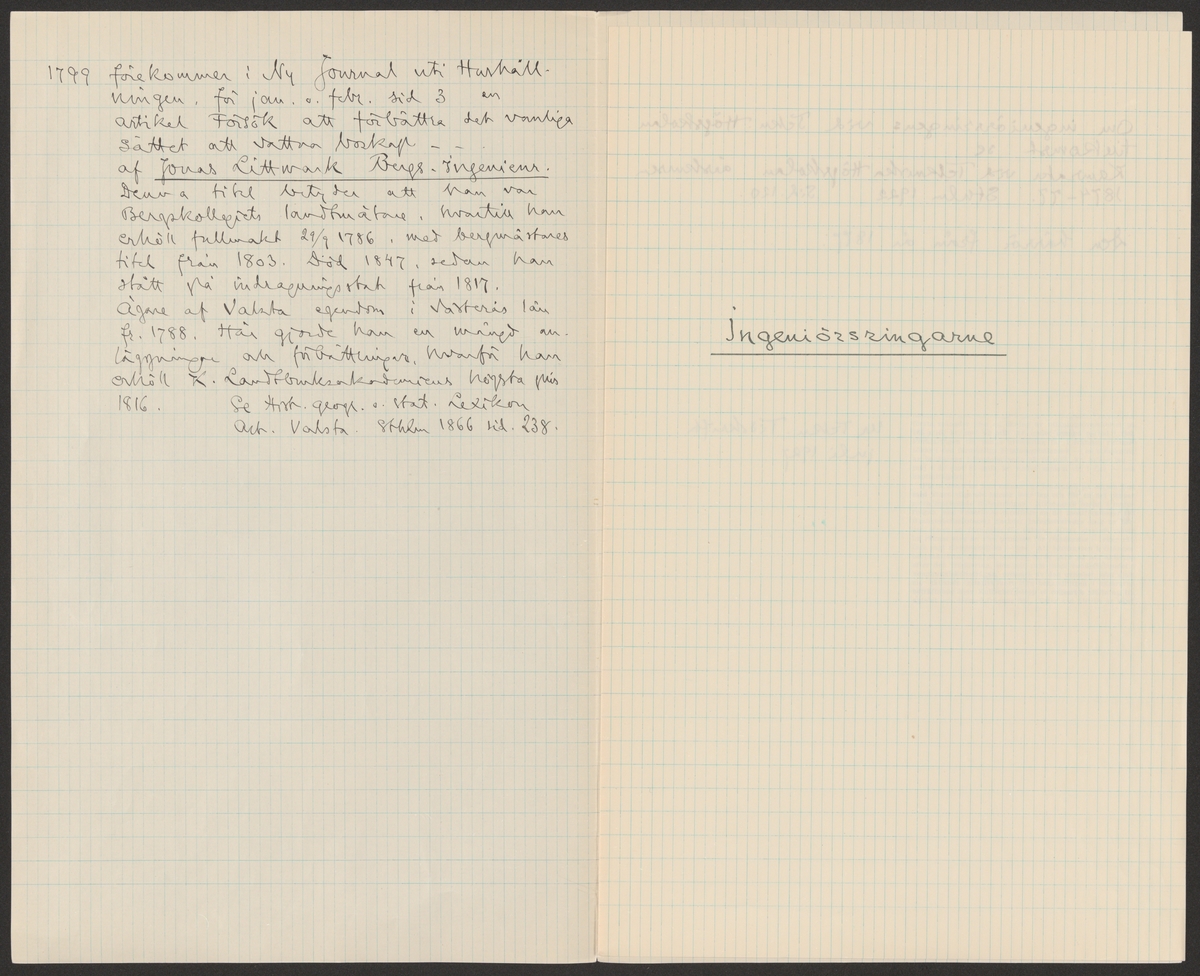 1799 förekommer i Ny Journal uti Hushåll-
ningen, för jan. o. febr. sid 3 en
artikel Försök att förbättra det vanliga
sättet att vattna boskap - -
af Jonas Littmark Bergs-Ingenieur.
Denna titel betyder att han var
Bergskollegiets landtmätare, hvartill han
erhöll fullmakt 29/9 1786, med bergmästares
titel från 1803. Död 1847, sedan han
stått på indragningsstat från 1817.
Ägare af Valsta egendom i Västerås län
fr. 1788. Här gjorde han en mängd an-
läggningar och förbättringar, hvarför han
erhöll K. Landtbruksakademiens högsta pris
1816. Se Hist. geogr. o. stat. Lexikon
Art. Valsta. Sthlm 1866 sid. 238.
Ingeniörsringarne